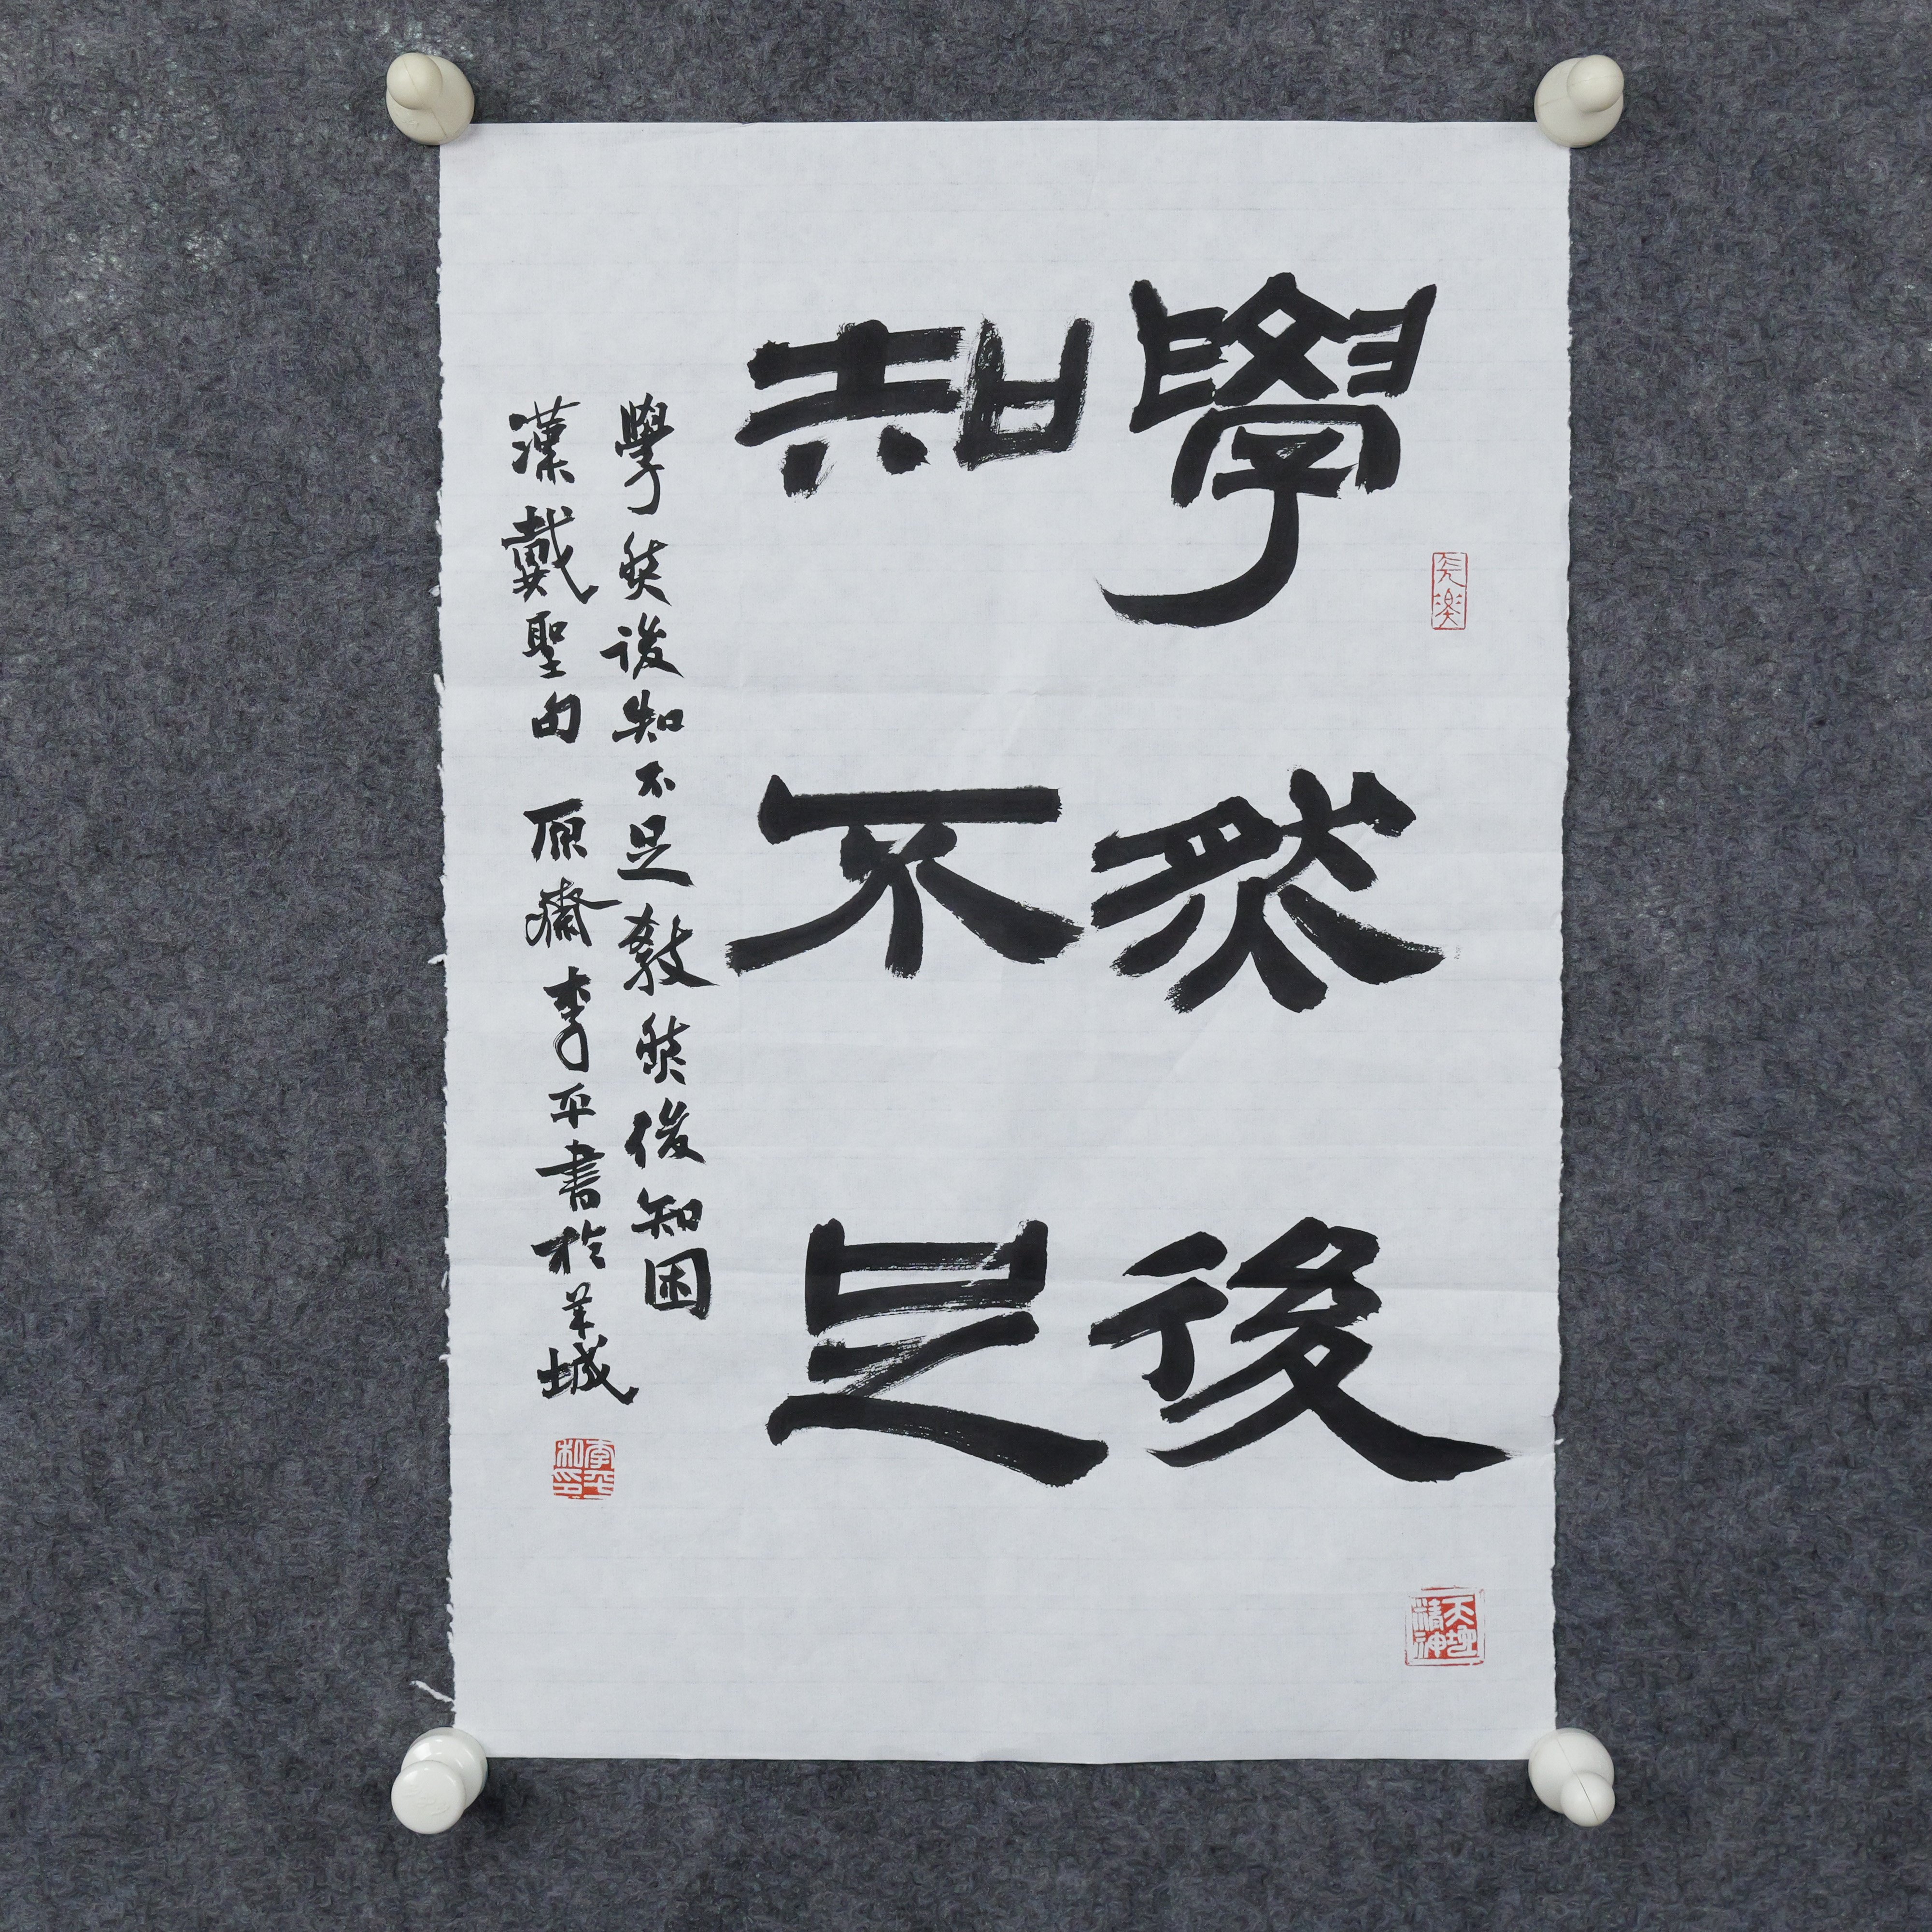 學然後
知不足
學然後知不足教然後知困
漢戴聖句 原齋李平書於羊城
天地
精神